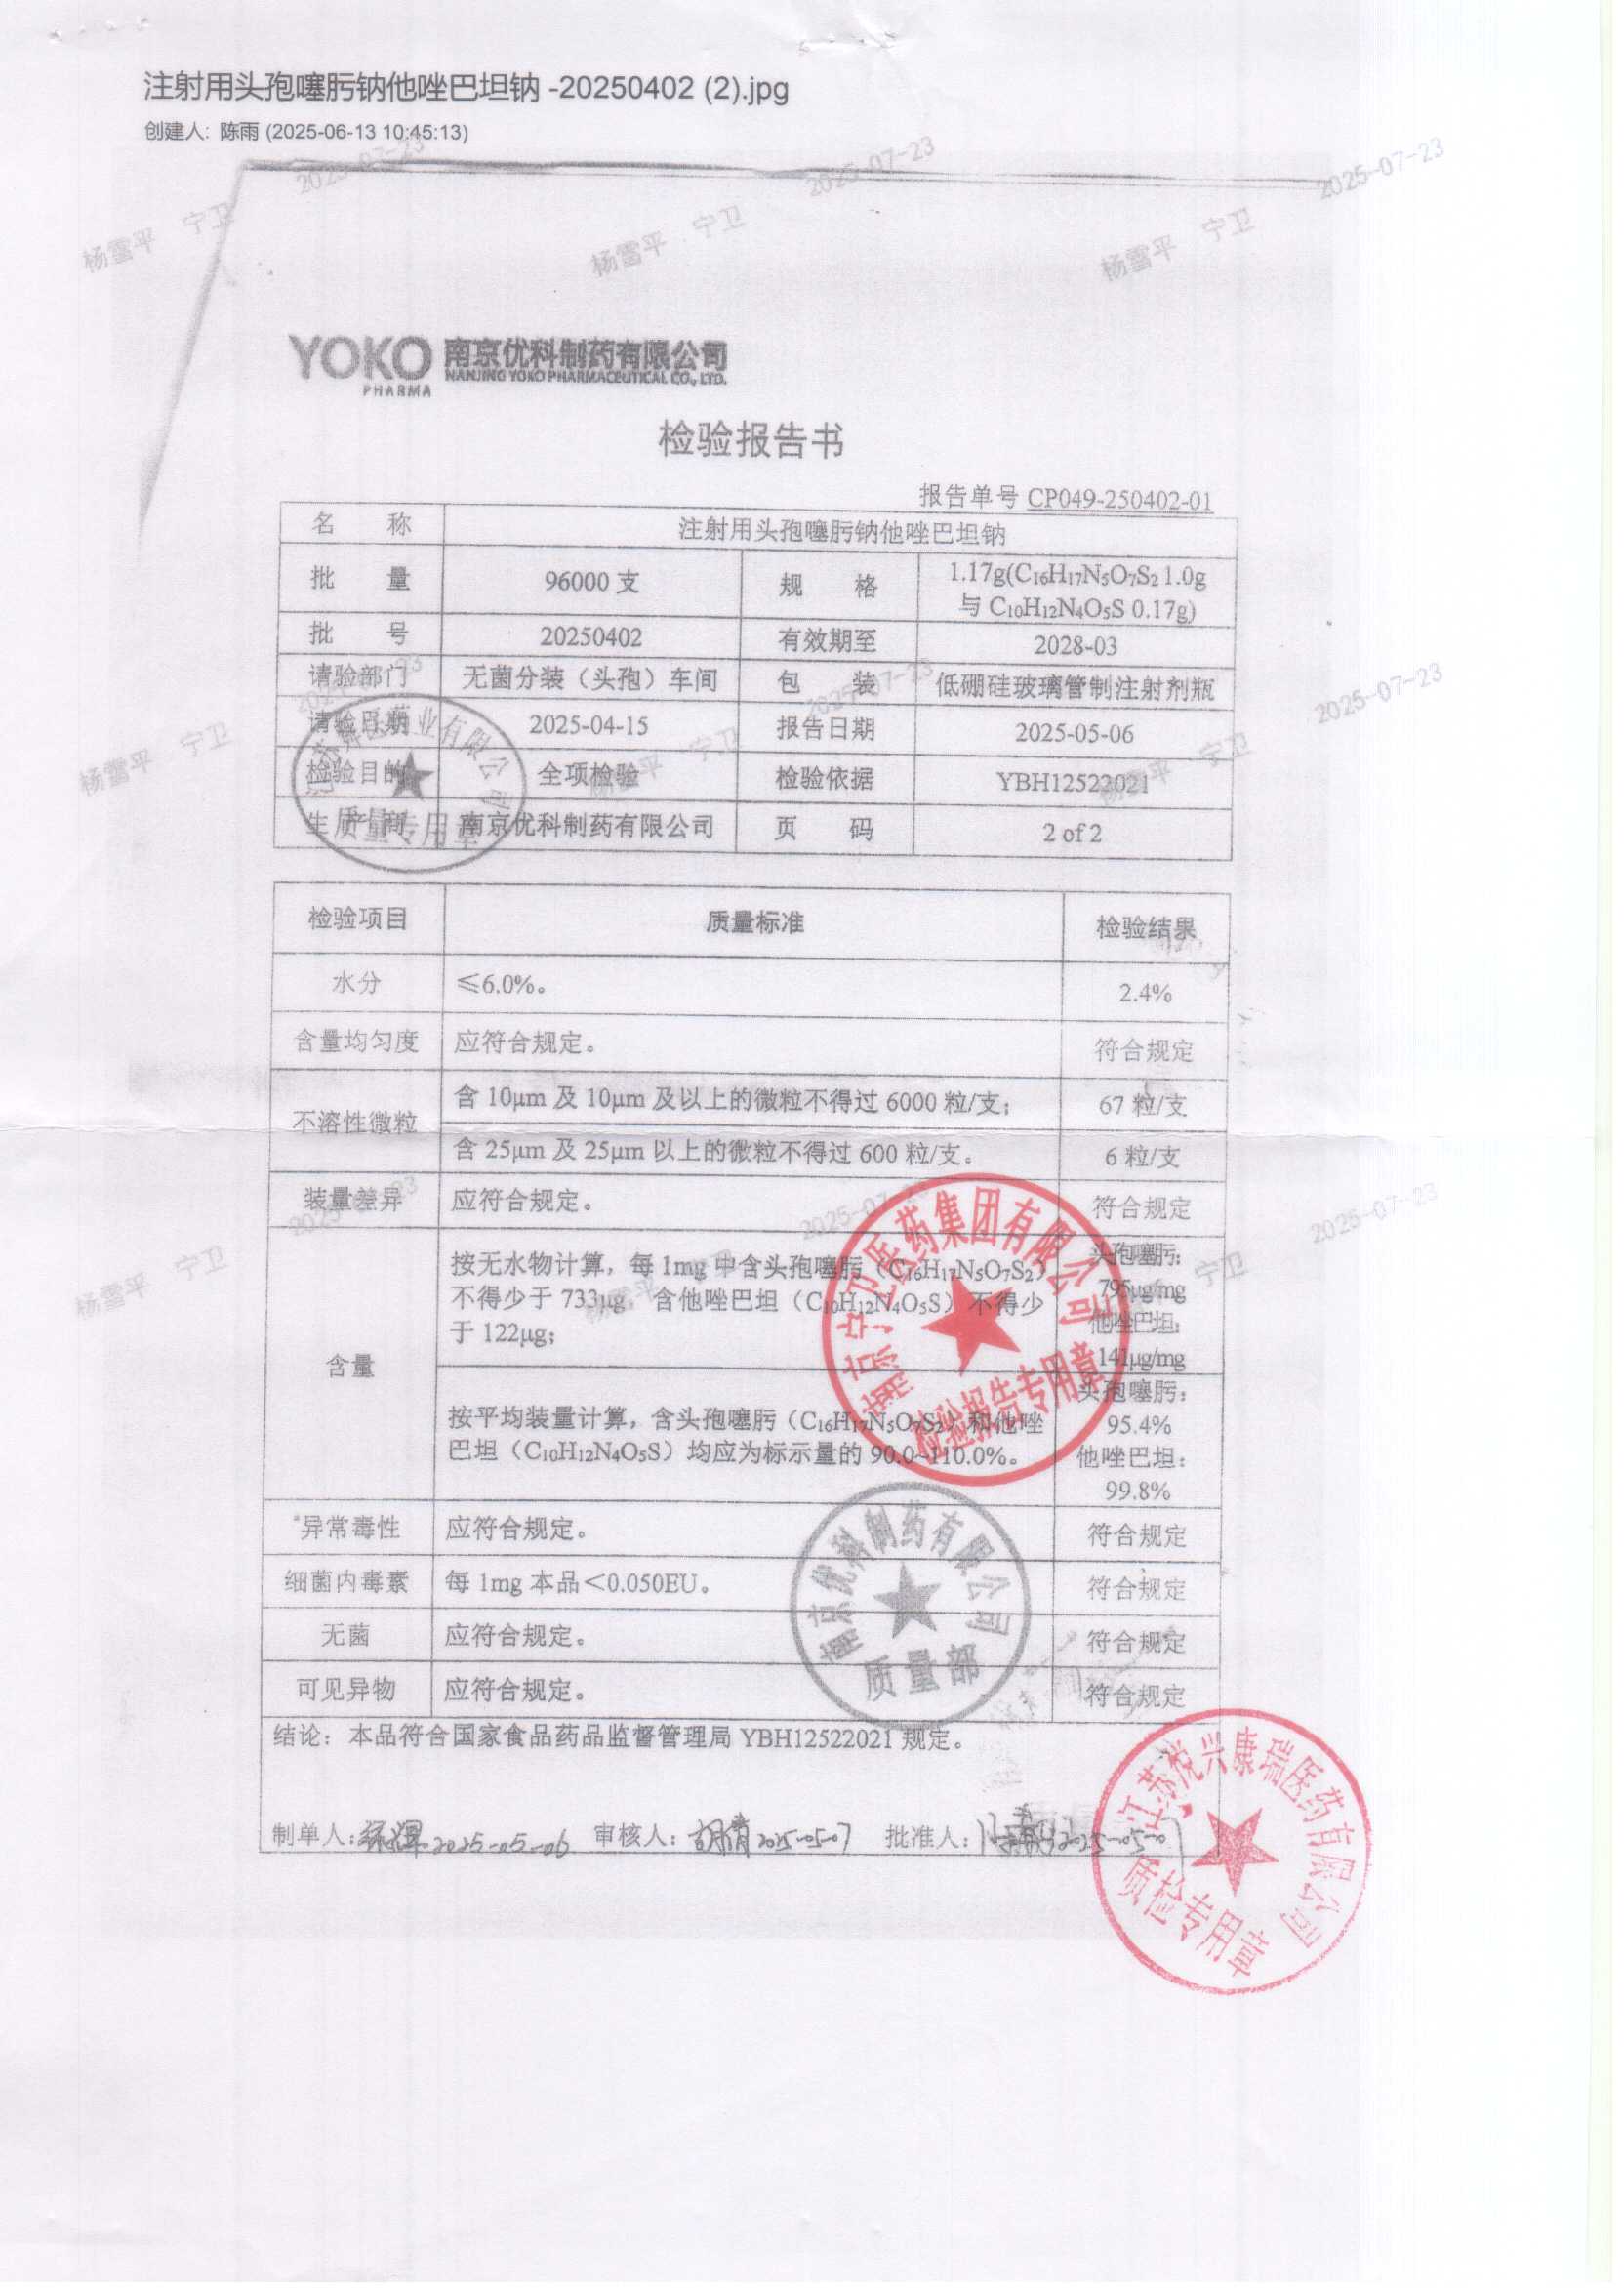 注射用头孢噻肟钠他唑巴坦钠 -20250402 (2).jpg
创建人: 陈雨 (2025-06-13 10:45:13)
YOKO 南京优科制药有限公司
PHARMA NANJING YOKO PHARMACEUTICAL CO., LTD.
检验报告书
报告单号 CP049-250402-01
名 称 注射用头孢噻肟钠他唑巴坦钠
批 量 96000 支 规 格 1.17g(C₁₆H₁₇N₅O₇S₂ 1.0g
与 C₁₀H₁₂N₄O₅S 0.17g)
批 号 20250402 有效期至 2028-03
请验部门 无菌分装（头孢）车间 包 装 低硼硅玻璃管制注射剂瓶
请验日期 2025-04-15 报告日期 2025-05-06
检验目的 全项检验 检验依据 YBH12522021
生产商 南京优科制药有限公司 页 码 2 of 2
质量专用章
检验项目 质量标准 检验结果
水分 ≤6.0%。 2.4%
含量均匀度 应符合规定。 符合规定
不溶性微粒 含 10μm 及 10μm 及以上的微粒不得过 6000 粒/支； 67 粒/支
含 25μm 及 25μm 以上的微粒不得过 600 粒/支。 6 粒/支
装量差异 应符合规定。 符合规定
含量
按无水物计算，每 1mg 中含头孢噻肟（C₁₆H₁₇N₅O₇S₂）
不得少于 733μg，含他唑巴坦（C₁₀H₁₂N₄O₅S）不得少
于 122μg；
头孢噻肟：
795μg/mg
他唑巴坦：
141μg/mg
按平均装量计算，含头孢噻肟（C₁₆H₁₇N₅O₇S₂）和他唑
巴坦（C₁₀H₁₂N₄O₅S）均应为标示量的 90.0~110.0%。
头孢噻肟：
95.4%
他唑巴坦：
99.8%
南京宁卫医药集团有限公司
检验报告专用章
*异常毒性 应符合规定。 符合规定
细菌内毒素 每 1mg 本品＜0.050EU。 符合规定
无菌 应符合规定。 符合规定
可见异物 应符合规定。 符合规定
南京优科制药有限公司
质量部
结论：本品符合国家食品药品监督管理局 YBH12522021 规定。
制单人: 2025-05-06 审核人: 胡倩 2025-05-07 批准人: 2025-05-07
江苏悦兴康瑞医药有限公司
质检专用章
杨雪平 宁卫 2025-07-23
杨雪平 宁卫 2025-07-23
杨雪平 宁卫 2025-07-23
杨雪平 宁卫 2025-07-23
杨雪平 宁卫 2025-07-23
杨雪平 宁卫 2025-07-23
杨雪平 宁卫 2025-07-23
杨雪平 宁卫 2025-07-23
杨雪平 宁卫 2025-07-23